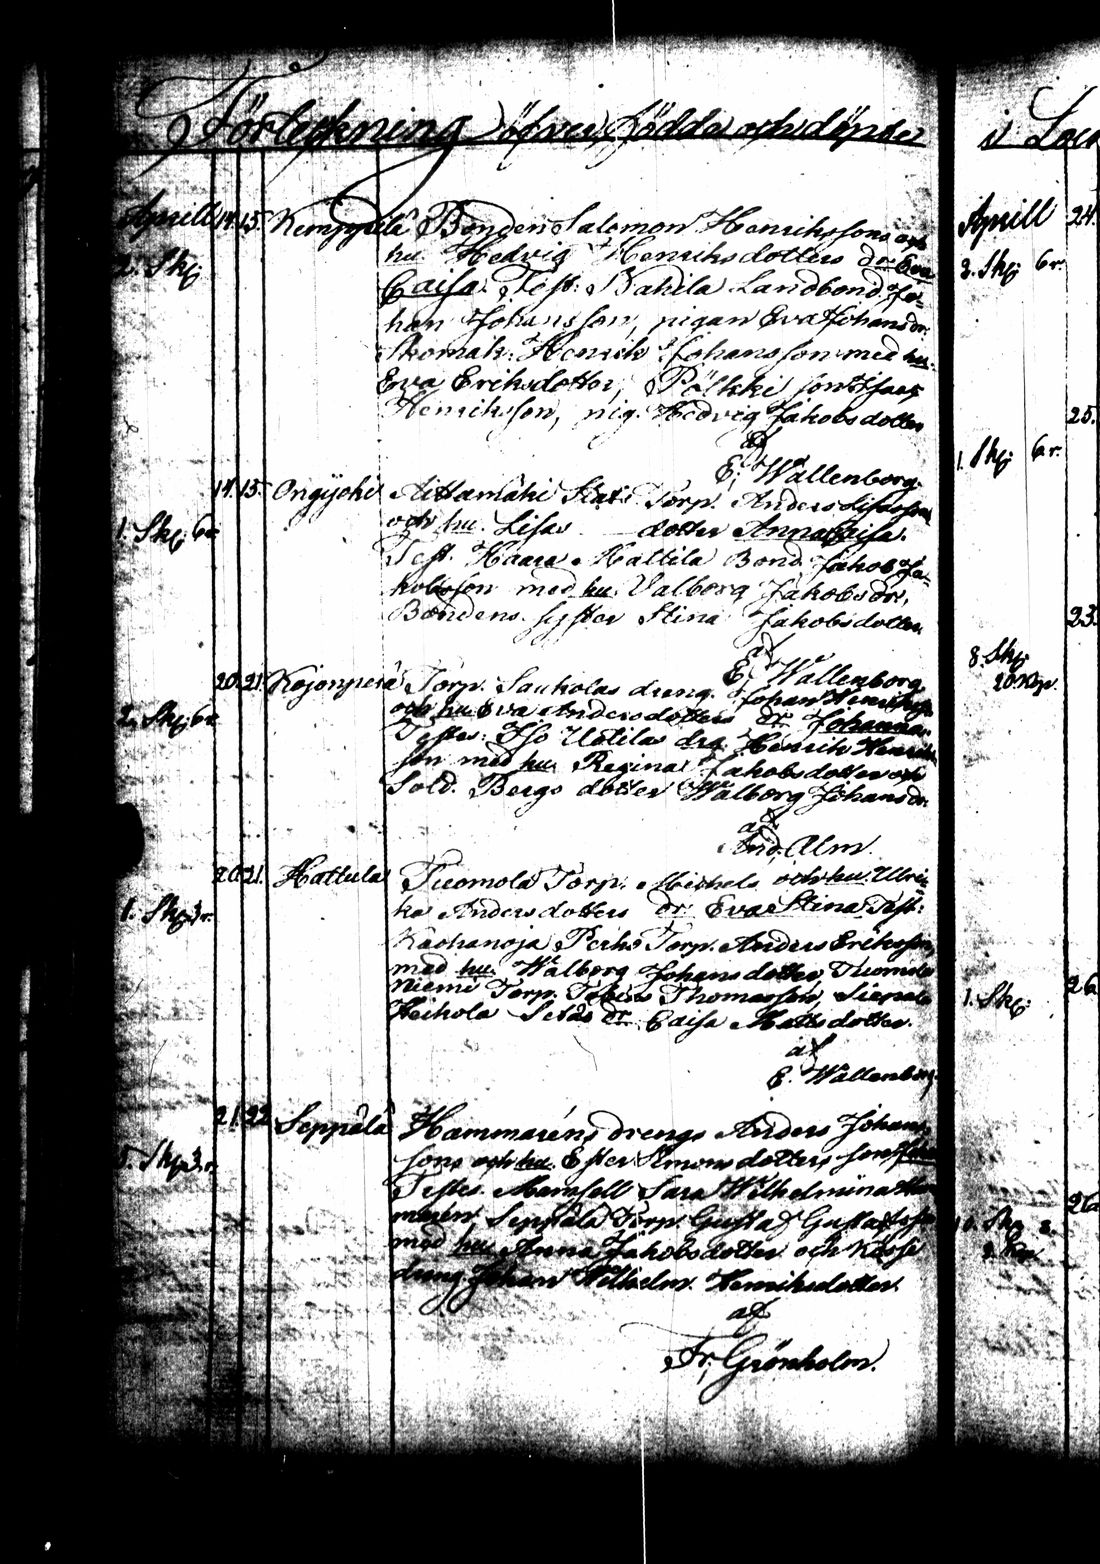 Förteckning öfver födda och döpte
Aprill 14. 15. Kemppilä Bonden Salomon Henrikssons och
2. Skj hu. Hedvig Henriksdotters dr. Eva
Caisa. Test: Bahila Landbond. Jo-
han Johansson, pigan Eva Johansdr.
Skomak: Henrik Johansson med hu.
Eva Eriksdotter, Pälkki son Isaac
Henriksson, pig. Hedvig Jakobsdotter
af
E. Wallenborg
14. 15. Ongijoki Aittamäki Torp. Anders
1. Skj 6 r. och hu. Lisas dotter Anna Caisa.
Test. Haara Mattila Bond. Jakob Ja-
kobsson med hu. Valborg Jakobsdr,
Bondens syster Stina Jakobsdotter
af
E. Wallenborg
20. 21. Kojonperä Torp. Sauholas dreng. Johan
2. Skj 6 r. och hu. Eva Andersdotters dr Johanna.
Testes: Iso Uotilas drg. Henrik Henrik
son med hu. Regina Jakobsdotter och
Sold. Bergs dotter Walborg Johansdr.
af
And. Alm.
20. 21. Hattula Tuomola Torp. Michels och hu. Ulri-
1. Skj 3 r. ka Andersdotters dr. Eva Stina Test:
Kaohanoja Perho Torp. Anders Eriksson,
med hu. Walborg Johansdotter, Tuomola
niemi Torp. Tobias Thomasson,
Heikola dr. Caisa Mattsdotter.
af
E. Wallenborg
21. 22. Seppälä Hammaréns drengs Anders Johans
5. Skj 3 r. sons och hu. Ester Simonsdotters son
Testes. Mamsell Sara Wilhelmina Ham
marén Seppälä Torp. Gustaf Gustafsson
med hu. Anna Jakobsdotter och
dreng Johan Wilhelm Henriksdotter.
af
Fr. Grönholm.
i
Aprill 24.
3. Skj 6 r.
25.
1. Skj 6 r.
23.
8. Skj
20 Kop.
26
1. Skj
26